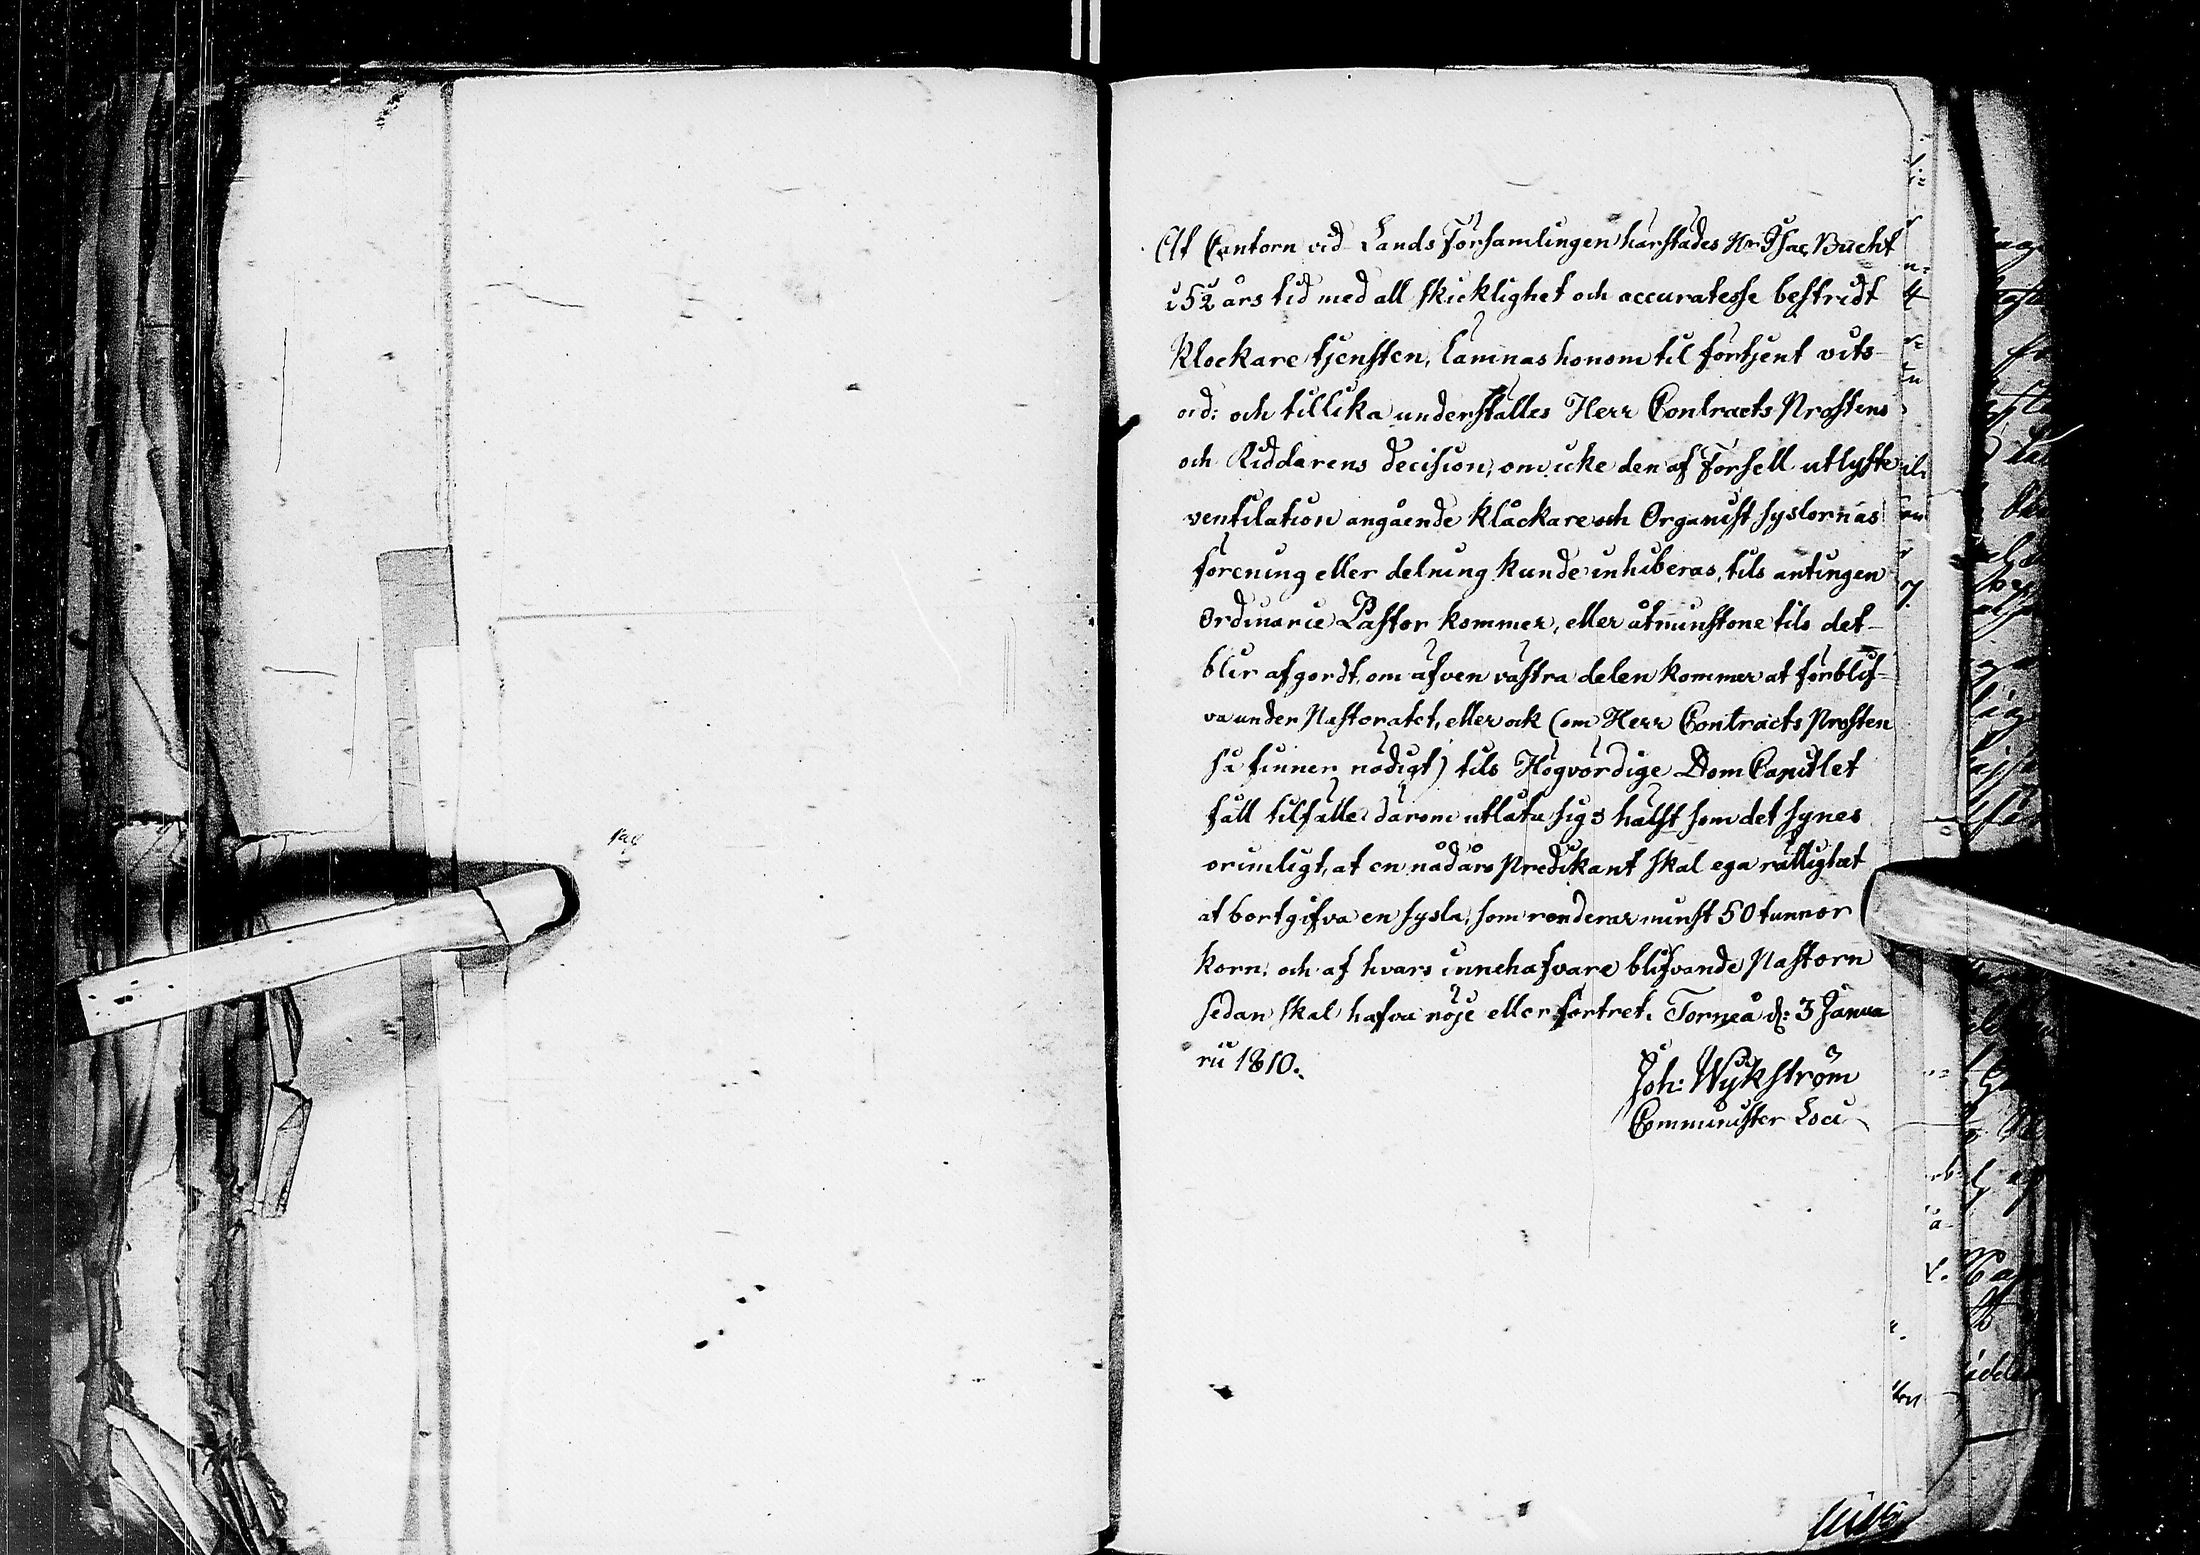 At Cantorn vid Lands Församlingen härstädes Hr Isac Bucht
i 52 års tid med all skicklighet och accuratesse bestridt
Klockare tjensten, lämnas honom til förtjent vits-
ord: och tillika underställes Herr Contracts Prostens
och Riddarens decision, om icke den af Forsell utlyste
ventilation angående klåckare och Organist syslornas
förening eller delning kunde inhiberas, tils antingen
Ordinarie Pastor kommer, eller åtminstone tils det
blir afgordt, om äfven västra delen kommer at förblif-
va under Pastoratet, eller ock (om Herr Contracts Prosten
så finner nödigt) tils Högvördige Dom Capitlet
fått tilfälle därom utlåta sig; hälst som det synes
orimligt, at en nådårs Predikant skal ega rättighet
at bortgifva en sysla, som renderar minst 50 tunnor
korn, och af hvars innehafvare blifvande Pastorn
sedan skal hafva nöje eller förtret. Torneå d: 3 Janua
rii 1810.
Joh: Wykström
Comminister Loci